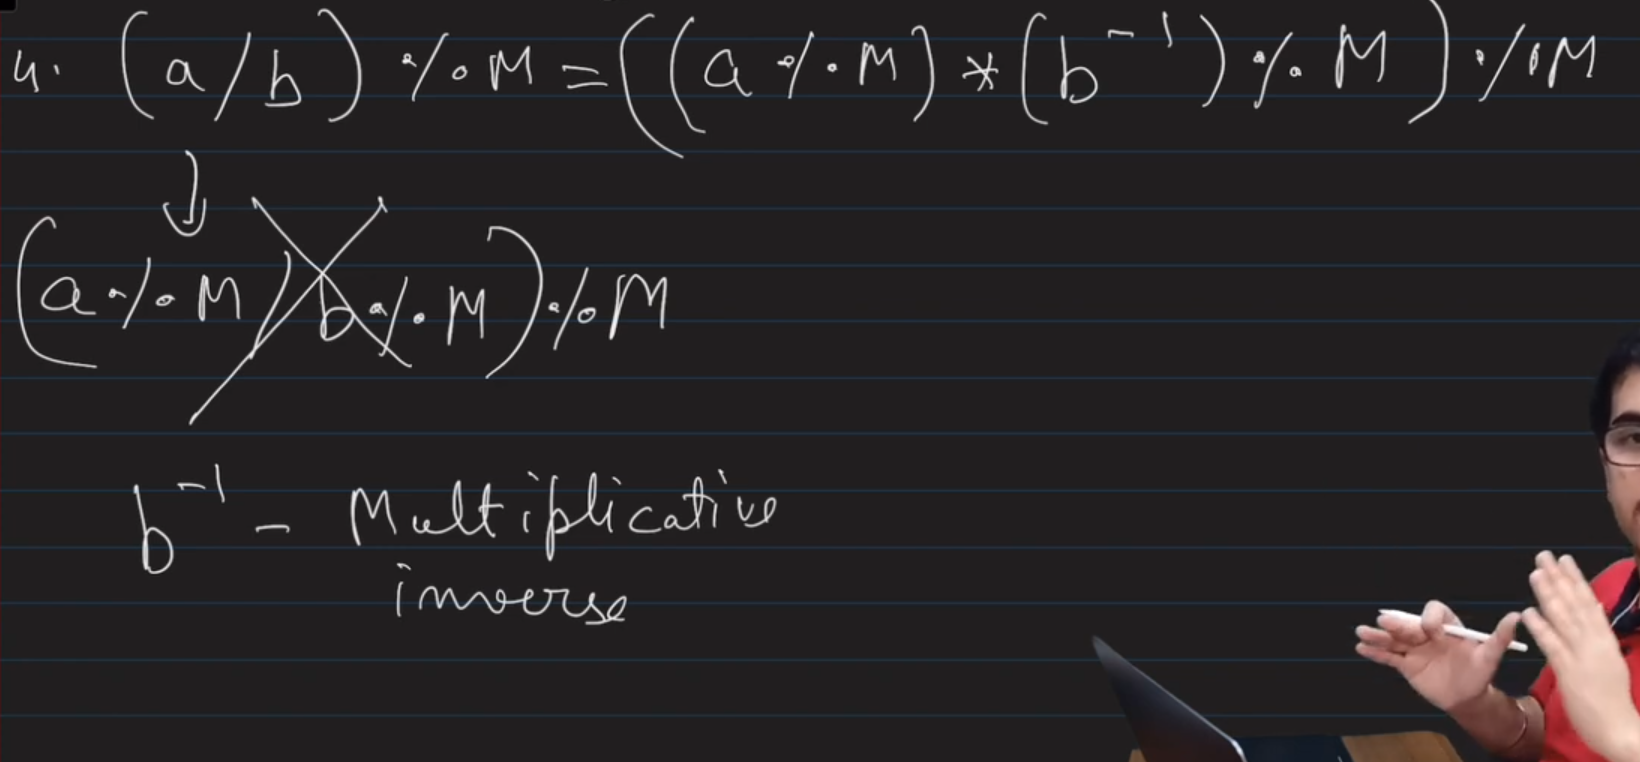 4. (a/b) % M = ((a % M) * (b⁻¹) % M) % M
(a % M) / b % M) % M
b⁻¹ - Multiplicative
inverse